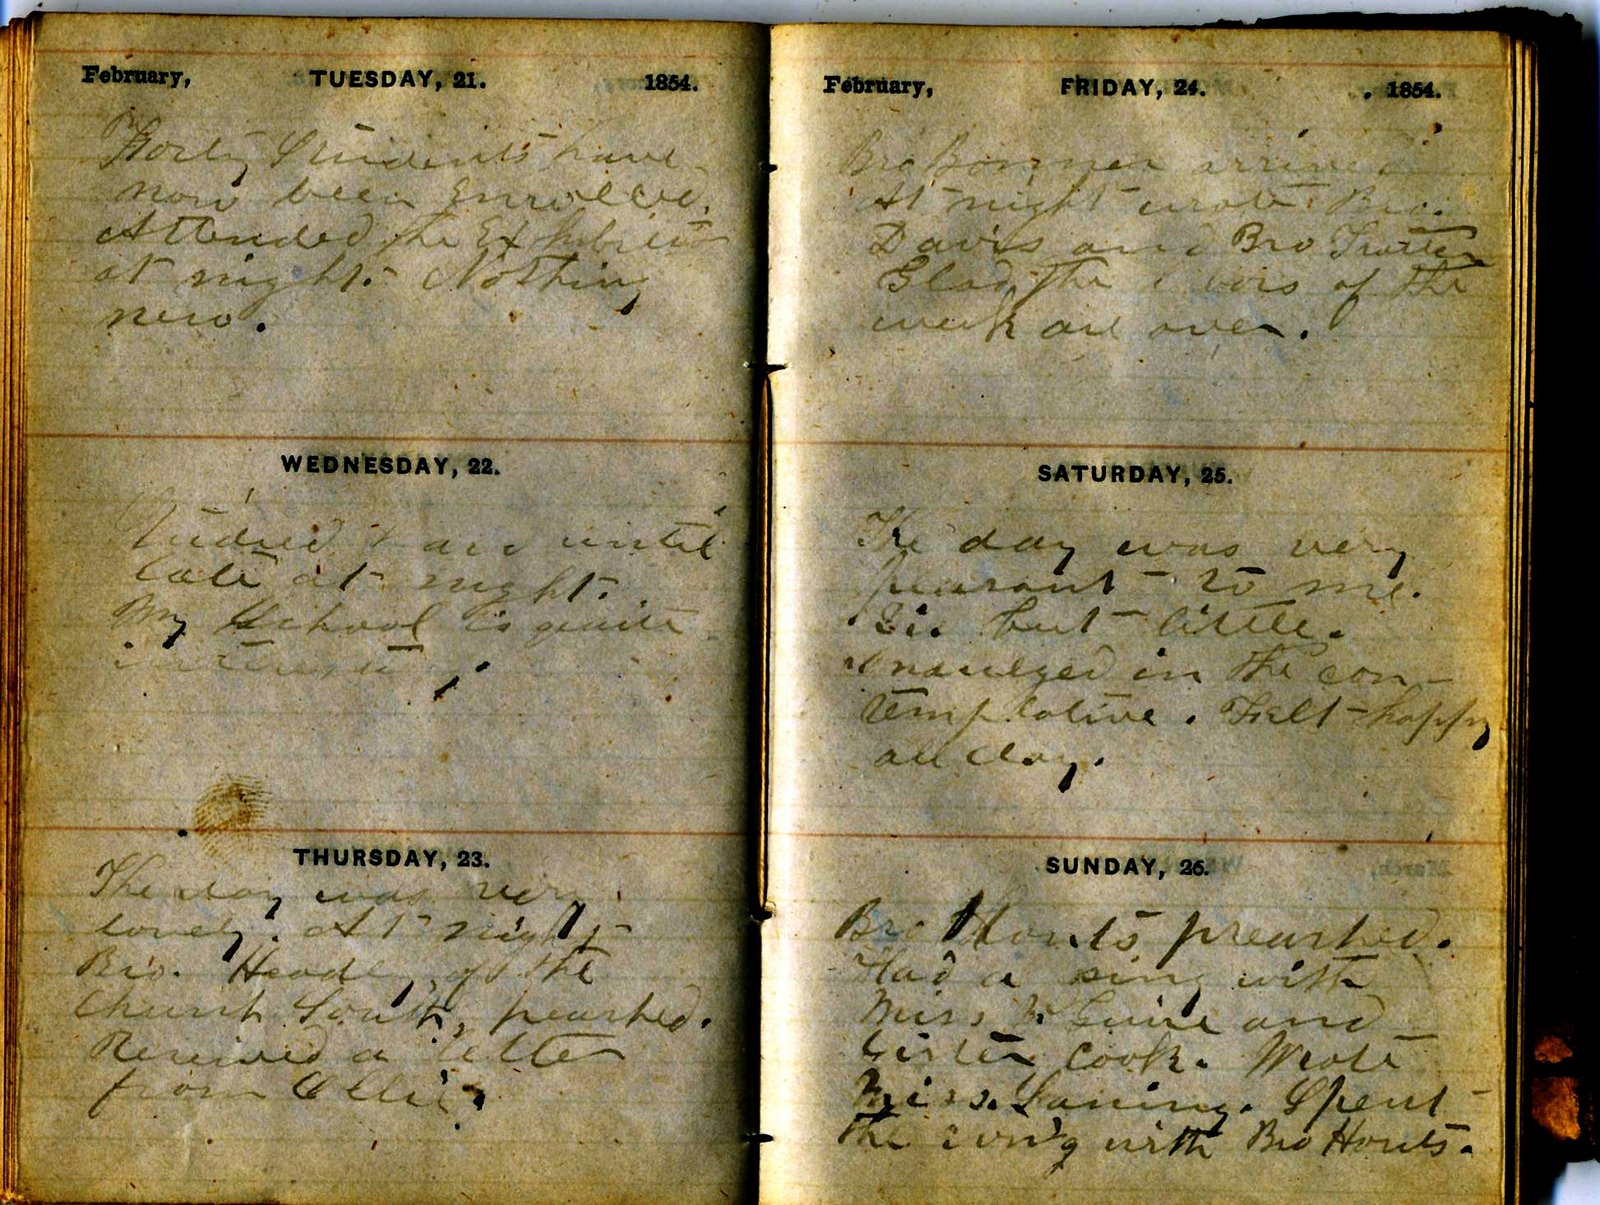 February, TUESDAY, 21. 1854.
Forty Students have
now been Enrolled.
Attended the Exhibition
at night. Nothing
new.
WEDNESDAY, 22.
Studied hard until
late at night.
My School is quite
interesting.
THURSDAY, 23.
The day was very
lovely. At night
Bro. Headley of the
Church South, preached.
Received a letter
from Ollie.
February, FRIDAY, 24. 1854.
Bro arrived
At night wrote Bro.
Davis and Bro Trotter
Glad the labors of the
week are over.
SATURDAY, 25.
The day was very
pleasant to me.
Did but little.
Indulged in the con-
templative. Felt happy
all day.
SUNDAY, 26.
Bro Houts preached.
Had a sing with
Miss McGuire and
Sister Cook. Wrote
Miss. Laning. Spent
the ev'n'g with Bro Houts.